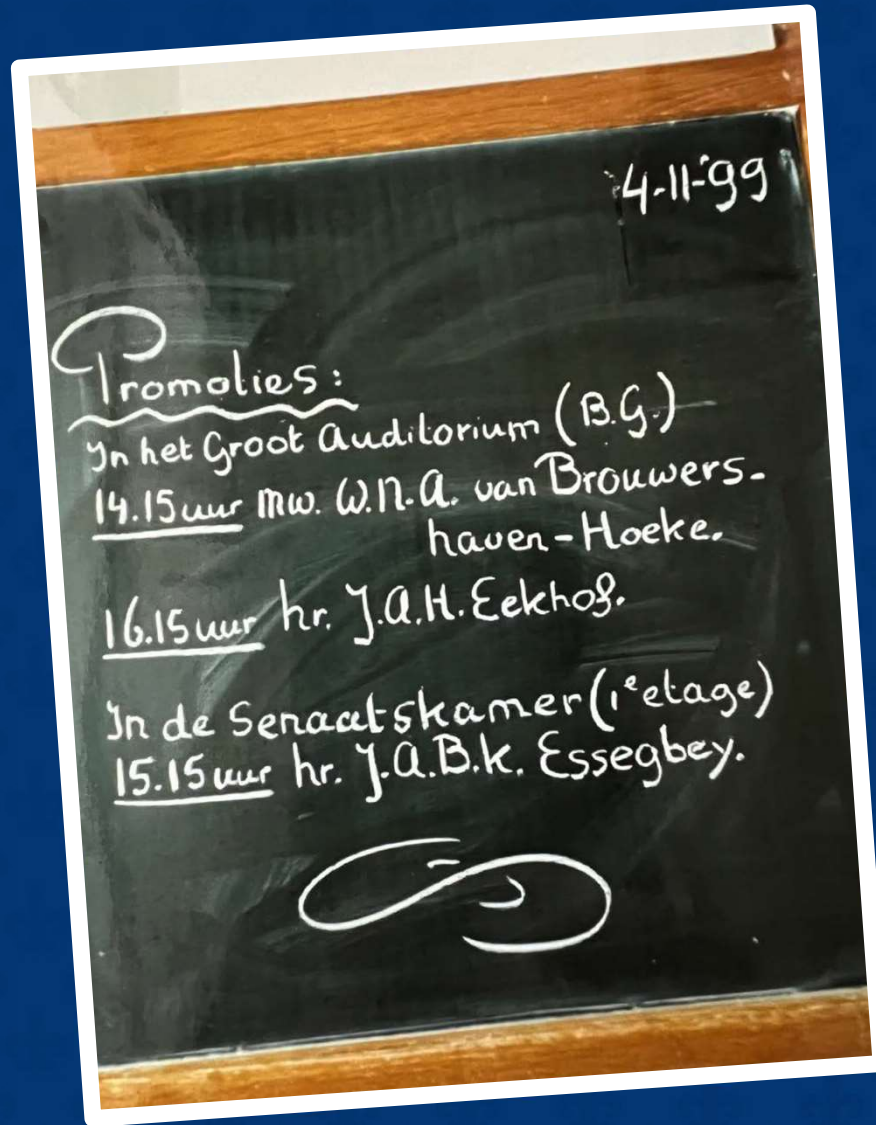 4-11-'99
Promoties:
In het Groot Auditorium (B.G.)
14.15 uur mw. W.N.A. van Brouwers-
haven-Hoeke.
16.15 uur hr. J.A.H. Eekhof.
In de Senaatskamer (1e etage)
15.15 uur hr. J.A.B.K. Essegbey.